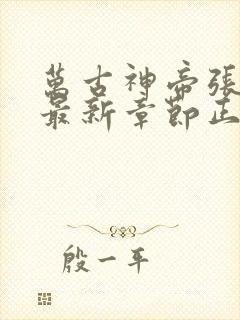 萬古神帝張
最新章節正
殷一平